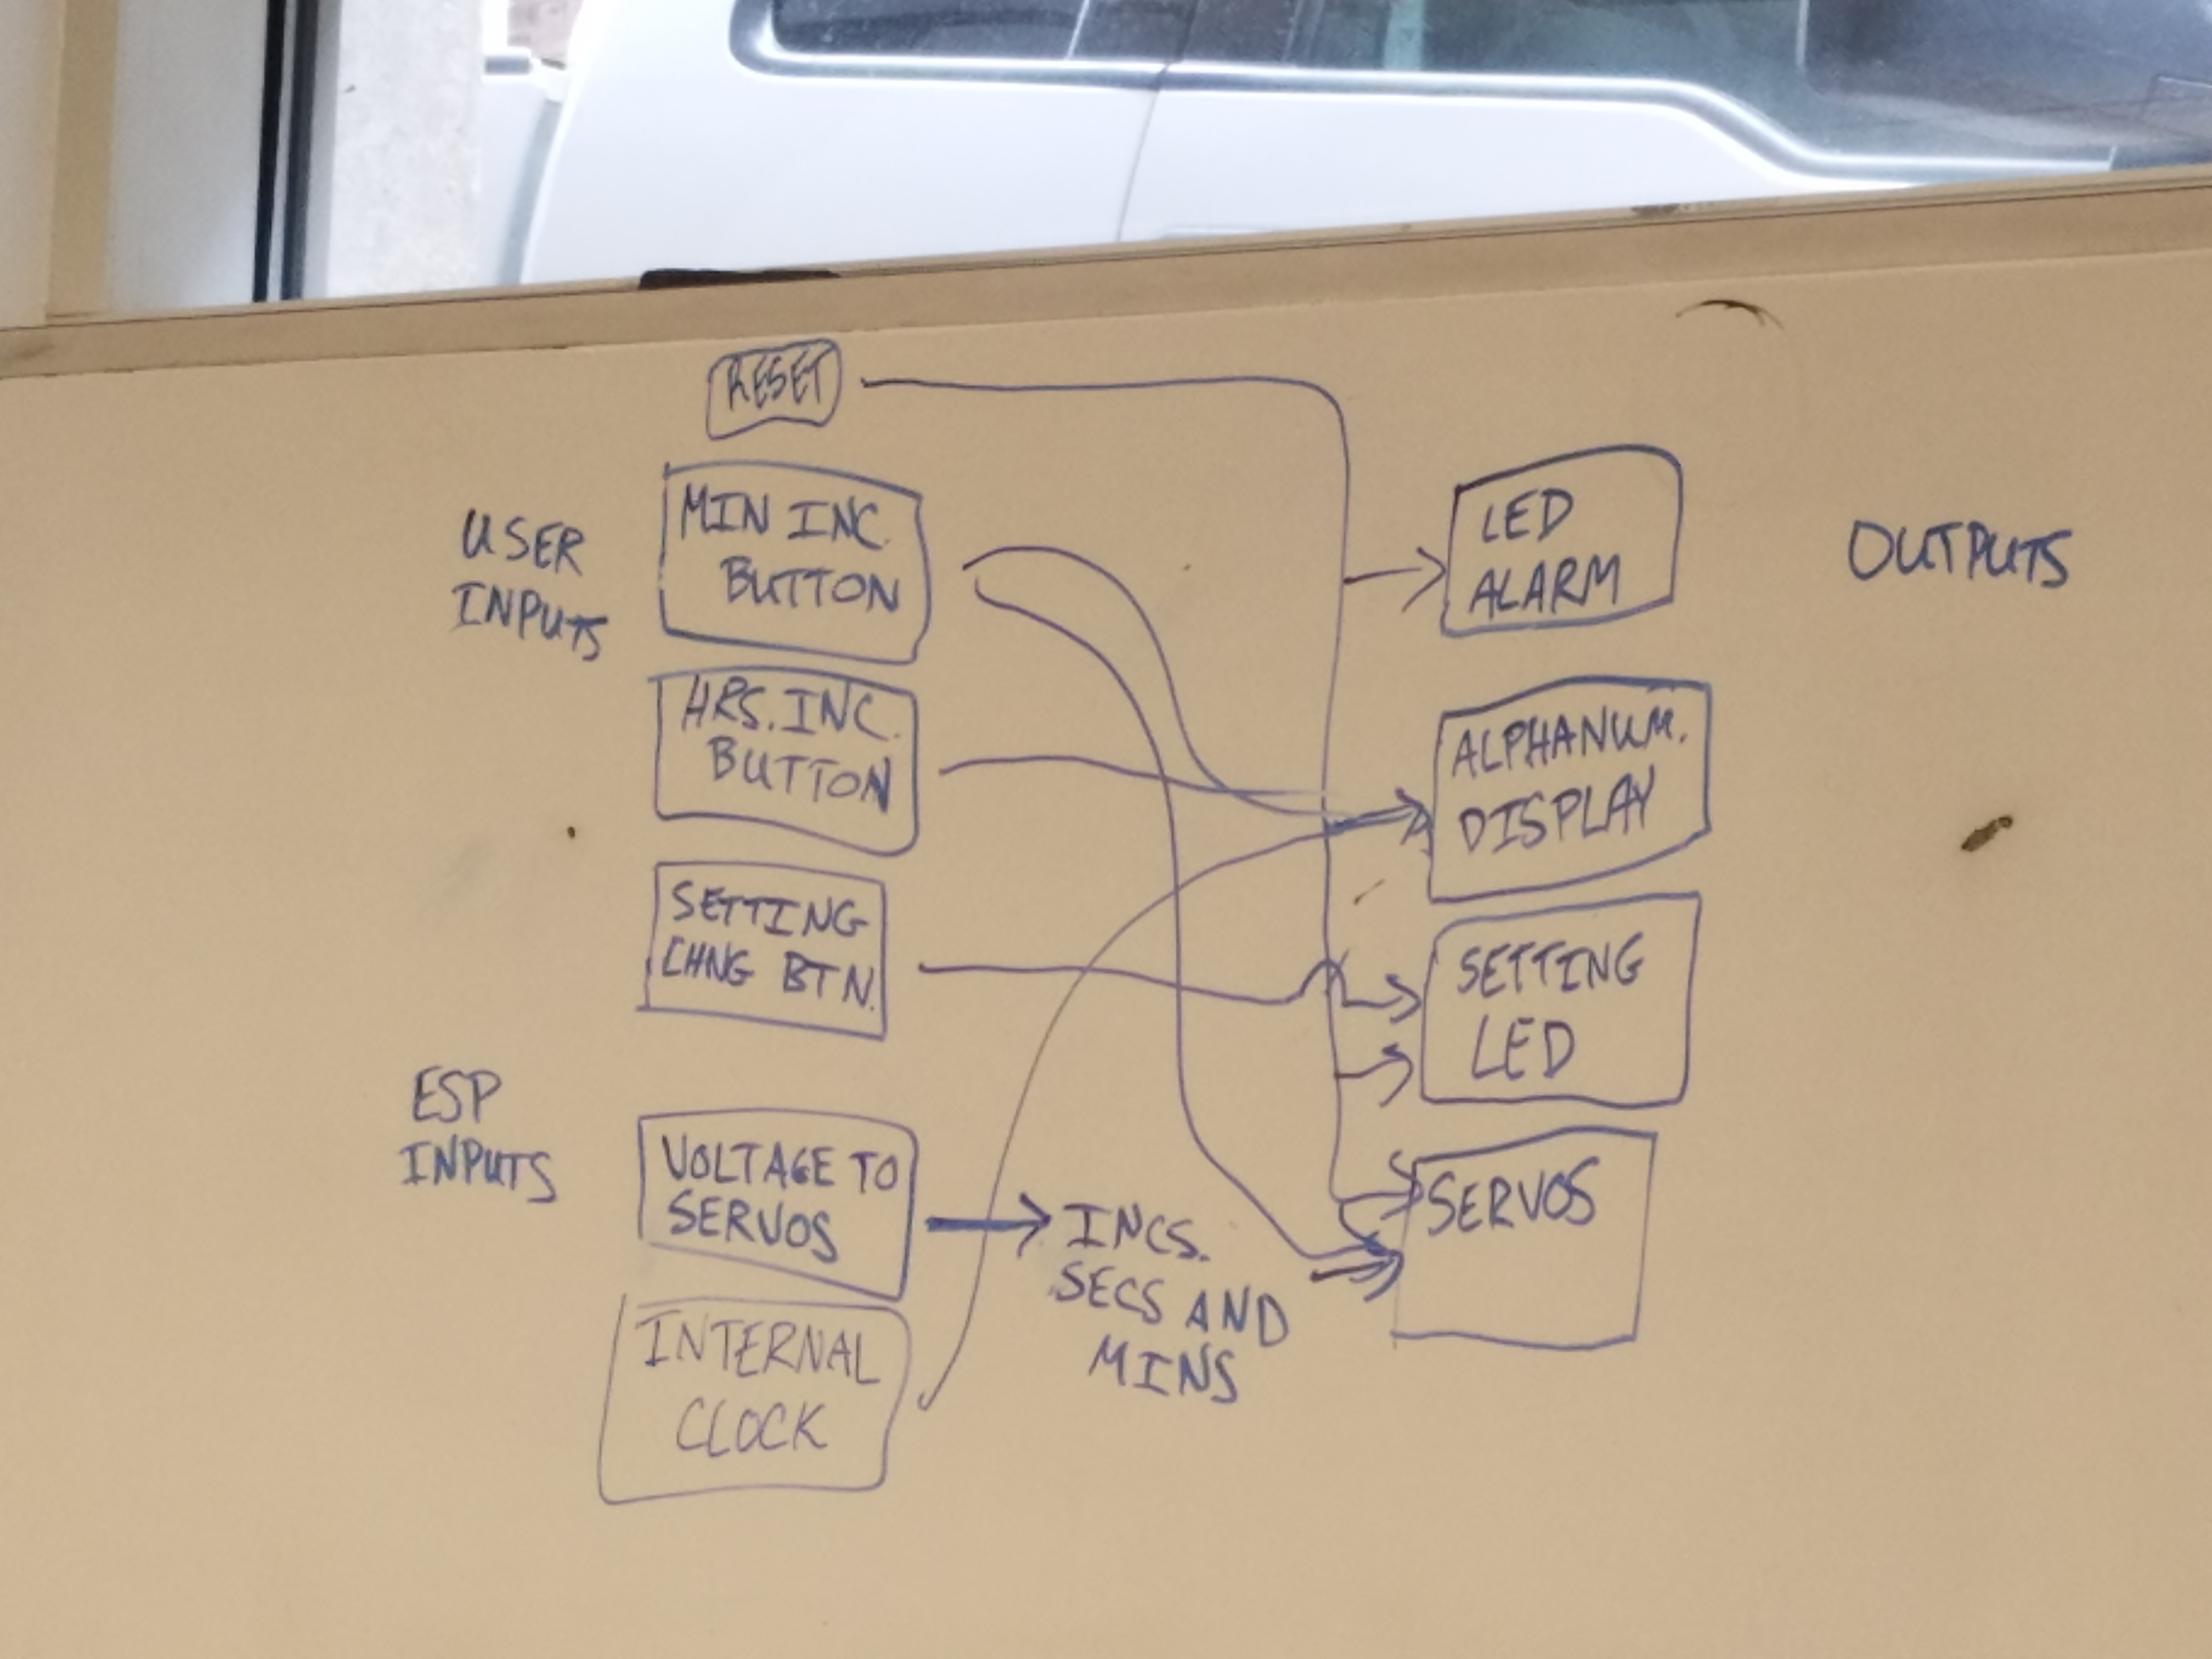 RESET
USER
INPUTS
MIN INC.
BUTTON
HRS. INC.
BUTTON
SETTING
CHNG BTN.
ESP
INPUTS
VOLTAGE TO
SERVOS
INTERNAL
CLOCK
INCS.
SECS AND
MINS
LED
ALARM
ALPHANUM.
DISPLAY
SETTING
LED
SERVOS
OUTPUTS